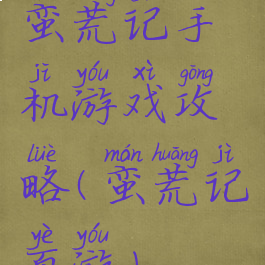 蛮荒记手
jī yóu xì gōng
机游戏攻
lüè mán huāng jì
略(蛮荒记
yè yóu
页游)